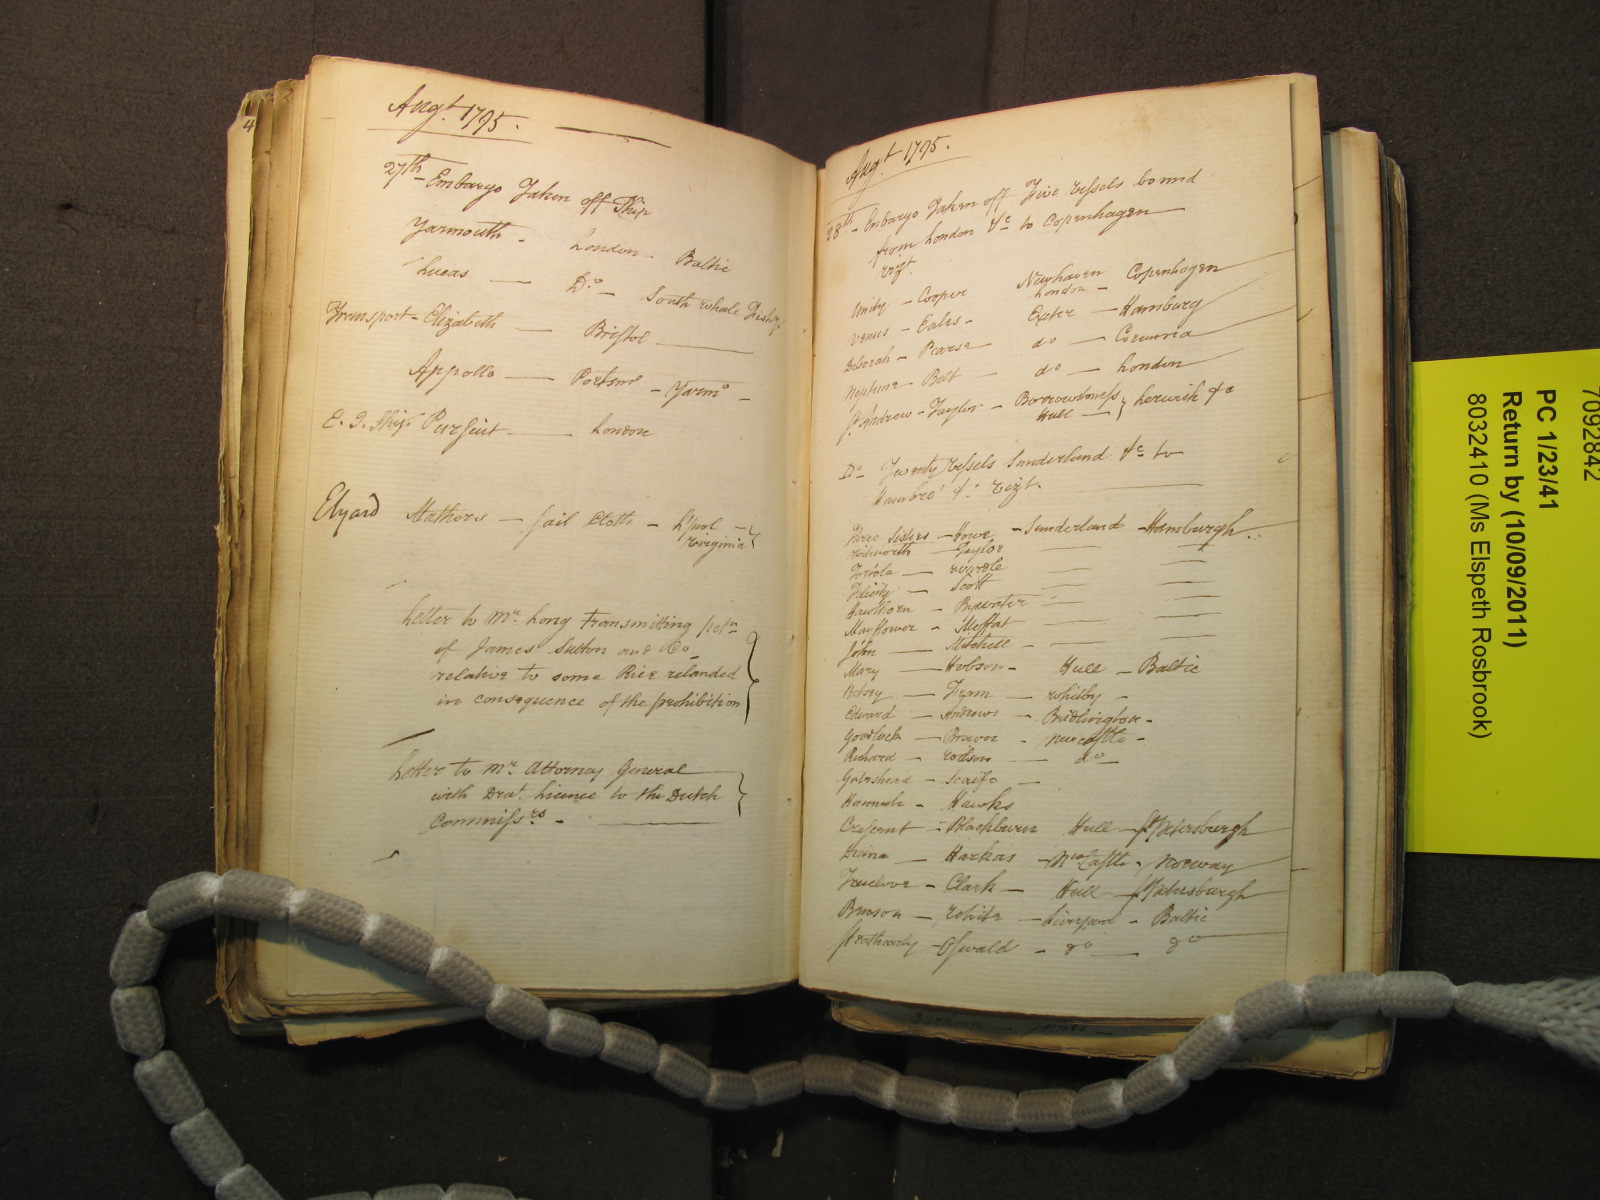 4
Augt. 1795.
27th Embargo Taken off Ship
Yarmouth - London - Baltic
Lucas — Do. - South whale Fishy.
Transport - Elizabeth — Bristol —
Appollo — Portsmo - Yarmo -
E. I. Ship Pursuit — London
Elyard Mathers — Sail Cloth - L'pool
Virginia
Letter to Mr. Long transmitting petn
of James Sutton and Co.
relative to some Rice relanded
in consequence of the prohibition
Letter to Mr. Attorney General
with Drat. Licence to the Dutch
Commissrs. -
Augt. 1795.
28th - Embargo Taken off Five Vessels bound
from London &c to Copenhagen
vizt.
Unity - Cooper Newhaven
London - Copenhagen
Venus - Eales - Exeter - Hamburg
Deborah - Pearse do - Corunna
Neptune - Belt do - London
St. Andrew - Taylor - Borrowstoness
Hull } Lerwick &c
Do Twenty Vessels Sunderland &c to
Hambro' &c vizt.
Three Sisters - Howe - Sunderland - Hamburgh
Taylor
Scott
Hawthorn - Bywater
Mayflower - Moffat
John — Mitchell -
Mary - Hobson - Hull - Baltic
Betsey — Fram — Whitby -
Edward — Andrews - Bridlington -
Goodluck — Brown - Newcastle -
Richard - do
Gateshead - Scaife
Hannah - Hawks
Cresent - Blackburn Hull - St. Petersburgh
Dvina — Harkas - NewCastle - Norway
Truelove - Clark — Hull - St. Petersburgh
Benson — White — Liverpool - Baltic
Oswald - do — do
7092842
PC 1/23/41
Return by (10/09/2011)
8032410 (Ms Elspeth Rosbrook)